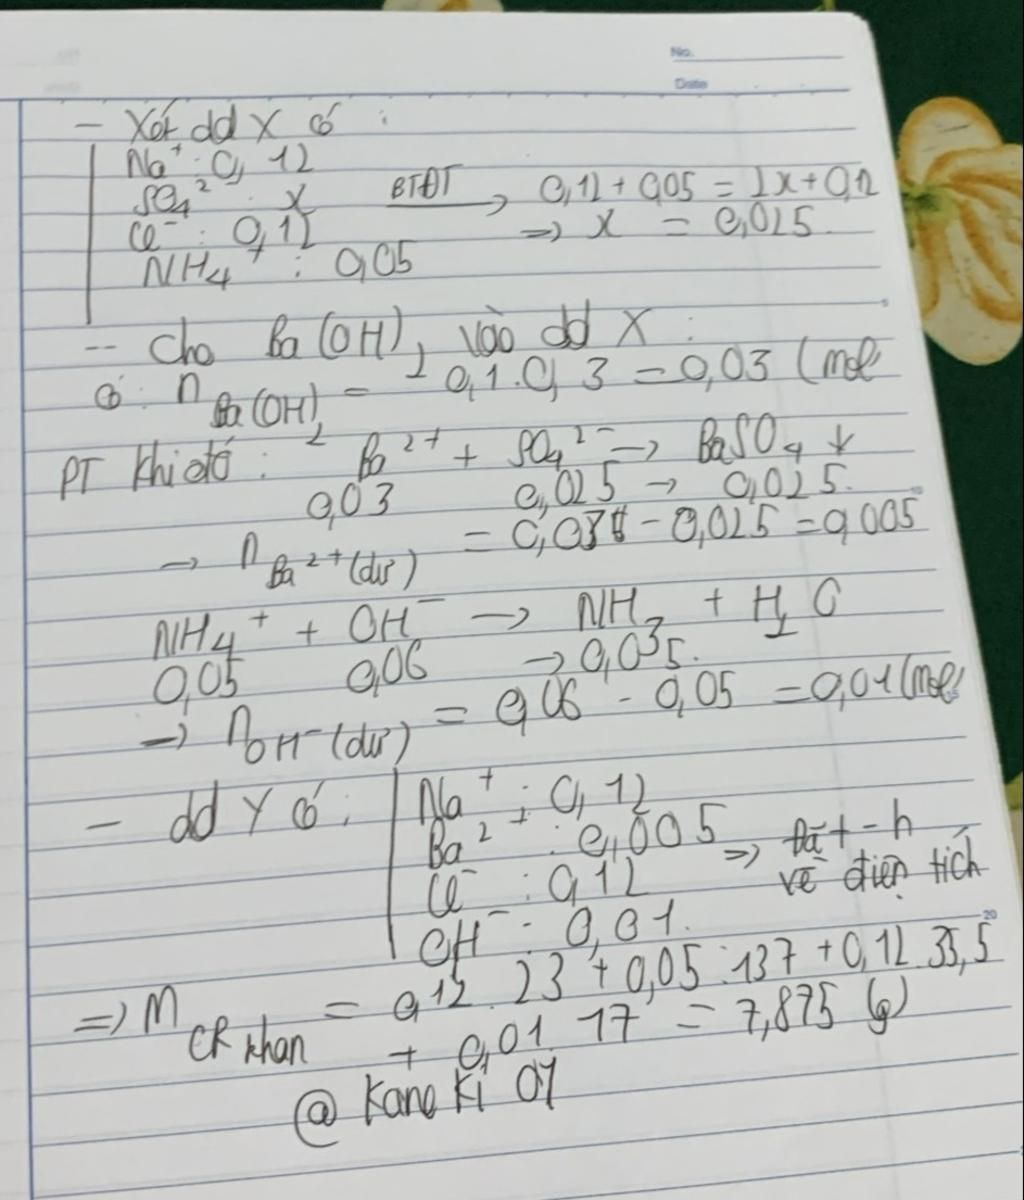 No.
Date
- Xét dd X có :
Na⁺ : 0,12
SO₄²⁻ : x BTĐT → 0,12 + 0,05 = 2x + 0,12
Cl⁻ : 0,12 => x = 0,025
NH₄⁺ : 0,05
- Cho Ba(OH)₂ vào dd X :
Có : n Ba(OH)₂ = 0,1.0,3 = 0,03 (mol)
PT khi đó : Ba²⁺ + SO₄²⁻ → BaSO₄ ↓
0,03 0,025 → 0,025.
→ n Ba²⁺(dư) = 0,03 - 0,025 = 0,005
NH₄⁺ + OH⁻ → NH₃ + H₂O
0,05 0,06 → 0,035.
→ nOH⁻(dư) = 0,06 - 0,05 = 0,01 (mol)
- dd Y có : Na⁺ : 0,12
Ba²⁺ : 0,005 => Đã t-h
Cl⁻ : 0,12 về điện tích
OH⁻ : 0,01.
=> m CR khan = 0,12 . 23 + 0,05 . 137 + 0,12 . 35,5
+ 0,01 . 17 = 7,875 (g)
@ Kane Ki 07